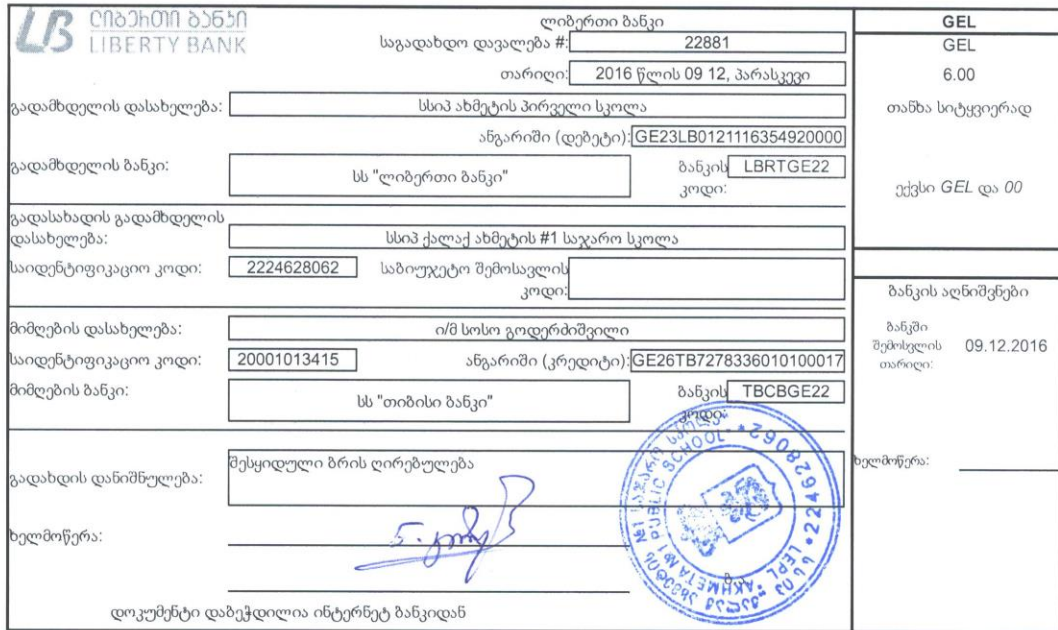 ლიბერთი ბანკი
LIBERTY BANK
ლიბერთი ბანკი
საგადახდო დავალება #: 22881
თარიღი: 2016 წლის 09 12, პარასკევი
გადამხდელის დასახელება: სსიპ ახმეტის პირველი სკოლა
ანგარიში (დებეტი): GE23LB0121116354920000
გადამხდელის ბანკი: სს "ლიბერთი ბანკი" ბანკის კოდი: LBRTGE22
გადასახადის გადამხდელის
დასახელება: სსიპ ქალაქ ახმეტის #1 საჯარო სკოლა
საიდენტიფიკაციო კოდი: 2224628062 საბიუჯეტო შემოსავლის
კოდი:
მიმღების დასახელება: ი/მ სოსო გოდერძიშვილი
საიდენტიფიკაციო კოდი: 20001013415 ანგარიში (კრედიტი): GE26TB7278336010100017
მიმღების ბანკი: სს "თიბისი ბანკი" ბანკის კოდი: TBCBGE22
გადახდის დანიშნულება: შესყიდული ბრის ღირებულება
ხელმოწერა:
ბ.ა.
დოკუმენტი დაბეჭდილია ინტერნეტ ბანკიდან
GEL
GEL
6.00
თანხა სიტყვიერად
ექვსი GEL და 00
ბანკის აღნიშვნები
ბანკში
შემოსვლის 09.12.2016
თარიღი:
ხელმოწერა:
LEPL "AKHMETA №1 PUBLIC SCHOOL"
*224628062*